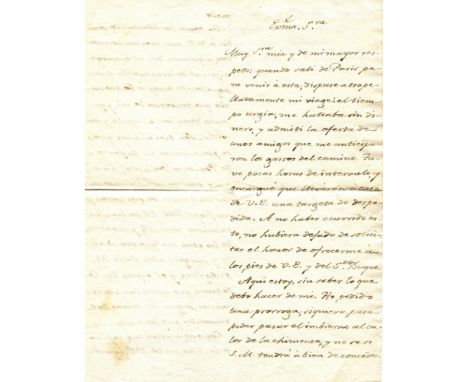 Exma. Sra.
Muy Sra. mia y de mi mayor res-
peto: quando salí de Paris pa-
ra venir á esta, dispuse atrope-
lladamente mi viage: el tiem-
po urgia, me hallaba sin di-
nero, y admití la oferta de
unos amigos que me anticipa-
ron los gastos del camino. Tu-
ve pocas horas de intervalo y
encargué que llevaran á casa
de V.E. una targeta de despe-
dida. A no haber ocurrido es-
to, no hubiera dejado de solici-
tar el honor de ofrecerme á
los pies de V.E. y del Sor. Duque.
Aqui estoy, sin saber lo que
debo hacer de mi. He pedido
una prorroga, siquiera para
poder pasar el imbierno al ca-
lor de la chimenea, y no se si
S.M. tendrá á bien de conceder-